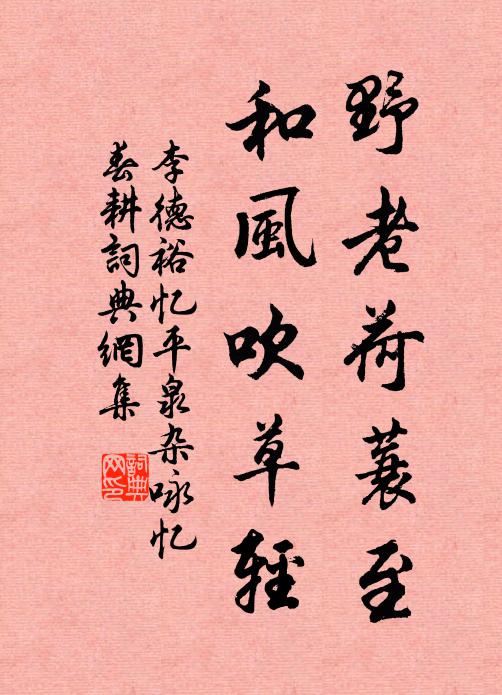 野老荷蓑至
和風吹草輕
李德裕忆平泉杂咏忆
春耕詞典網集
詞典
网印